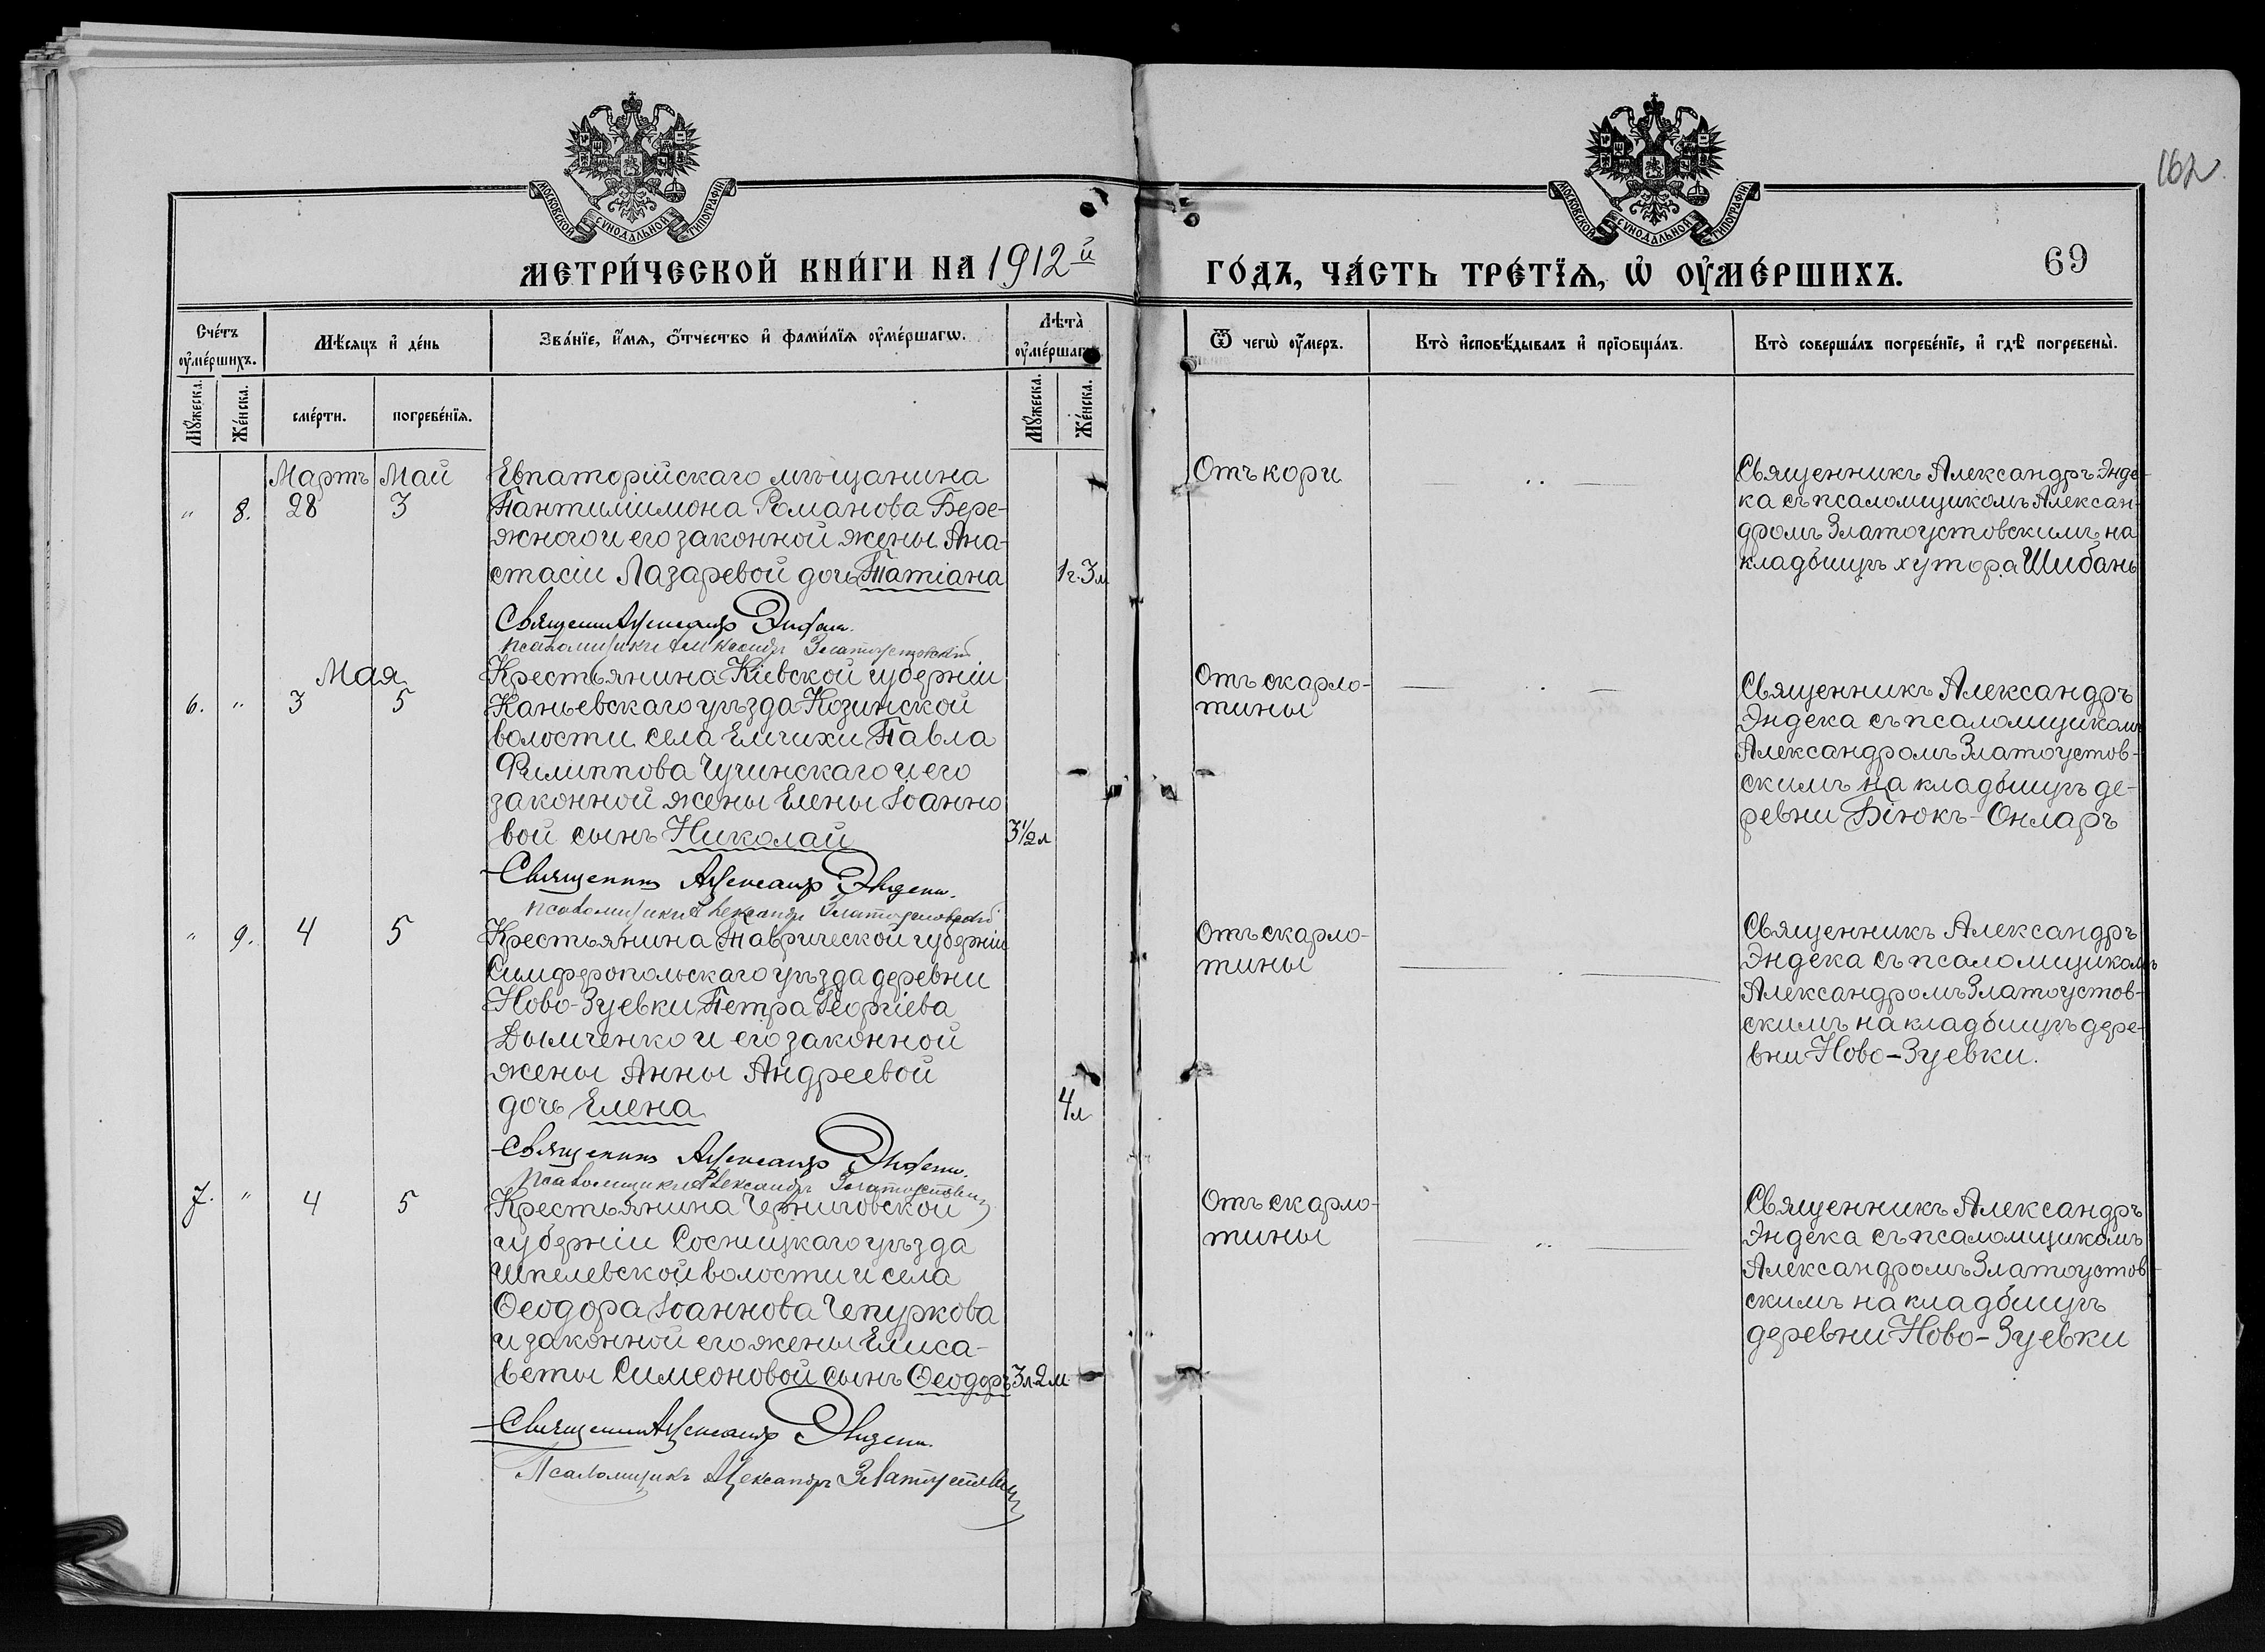 162
МОСКОВСКОЙ СѴНОДАЛЬНОЙ ТИПОГРАФІИ
МОСКОВСКОЙ СѴНОДАЛЬНОЙ ТИПОГРАФІИ
МЕТРИ́ЧЕСКОЙ КНИ́ГИ НА 1912й
ГО́ДЪ, ЧА́СТЬ ТРЕ́ТЇѦ, Ѡ҆ ОУ҆МЕ́РШИХЪ.
69
Сче́тъ оу҆ме́ршихъ.
Мѣ́сяцъ и҆ де́нь
Зва́нїе, и҆́мя, ѻ҆́тчество и҆ фами́лїя оу҆ме́ршагѡ.
Лѣта̀ оу҆ме́ршагѡ
Мꙋ́жеска.
Же́нска.
сме́рти.
погребе́нїя.
Мꙋ́жеска.
Же́нска.
Ѿ чегѡ̀ оу҆́меръ.
Кто̀ и҆сповѣ́дывалъ и҆ прїобща́лъ.
Кто̀ соверша́лъ погребе́нїе, и҆ гдѣ̀ погребены̀.
Мартъ Май
" 8. 28 3
Евпаторійскаго мѣщанина
Пантилиимона Романова Бере-
жного и его законной жены Ана-
стасіи Лазаревой дочь Татіана
1г.3м
Священникъ Александръ Эндека.
Псаломщикъ Александръ Златоустовскій
Отъ кори
Священникъ Александръ Энде-
ка съ псаломщикомъ Алексан-
дромъ Златоустовскимъ на
кладбищѣ хутора Шибань
Мая
6. " 3 5
Крестьянина Кіевской губерніи
Каньевскаго уѣзда Козинской
волости села Емчихи Павла
Филиппова Чучинскаго и его
законной жены Елены Іоанно
вой сынъ Николай
3½л
Священникъ Александръ Эндека.
Псаломщикъ Александръ Златоустовскій
Отъ скарла-
тины
Священникъ Александръ
Эндека съ псаломщикомъ
Александромъ Златоустов-
скимъ на кладбищѣ де-
ревни Біюкъ-Онларъ
" 9. 4 5
Крестьянина Таврической губерніи
Симферопольскаго уѣзда деревни
Ново-Зуевки Петра Георгіева
Дымченко и его законной
жены Анны Андреевой
дочь Елена
4л
Священникъ Александръ Эндека.
Псаломщикъ Александръ Златоустовскій
Отъ скарло-
тины
Священникъ Александръ
Эндека съ псаломщикомъ
Александромъ Златоустов-
скимъ на кладбищѣ дере-
вни Ново-Зуевки.
7. " 4 5
Крестьянина Черниговской
губерніи Сосницкаго уѣзда
волости и села
Ѳеодора Іоаннова Чепуркова
и законной его жены Елиса-
веты Симеоновой сынъ Ѳеодоръ
3л2м
Священникъ Александръ Эндека.
Псаломщикъ Александръ Златоустовскій
Отъ скарло-
тины
Священникъ Александръ
Эндека съ псаломщикомъ
Александромъ Златоустов-
скимъ на кладбищѣ
деревни Ново-Зуевки